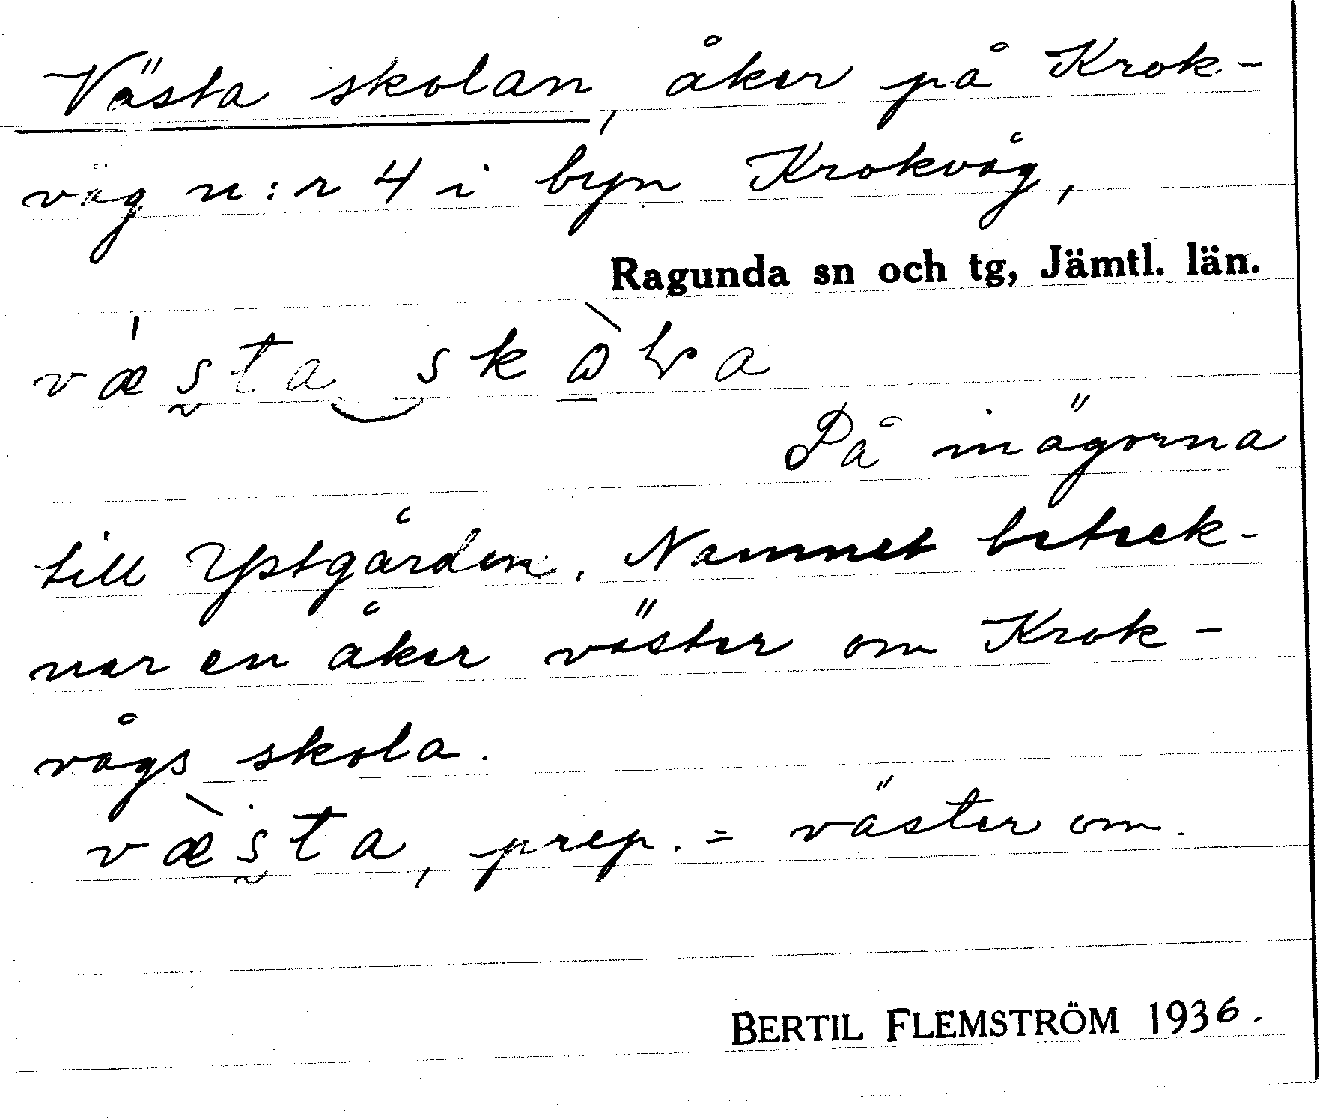 Västa skolan, åker på Krok-
våg n:r 4 i byn Krokvåg,
Ragunda sn och tg, Jämtl. län.
På inägorna
till Ystgården. Namnet beteck-
nar en åker väster om Krok-
vågs skola.
væsta, prep. = väster om.
BERTIL FLEMSTRÖM 1936.